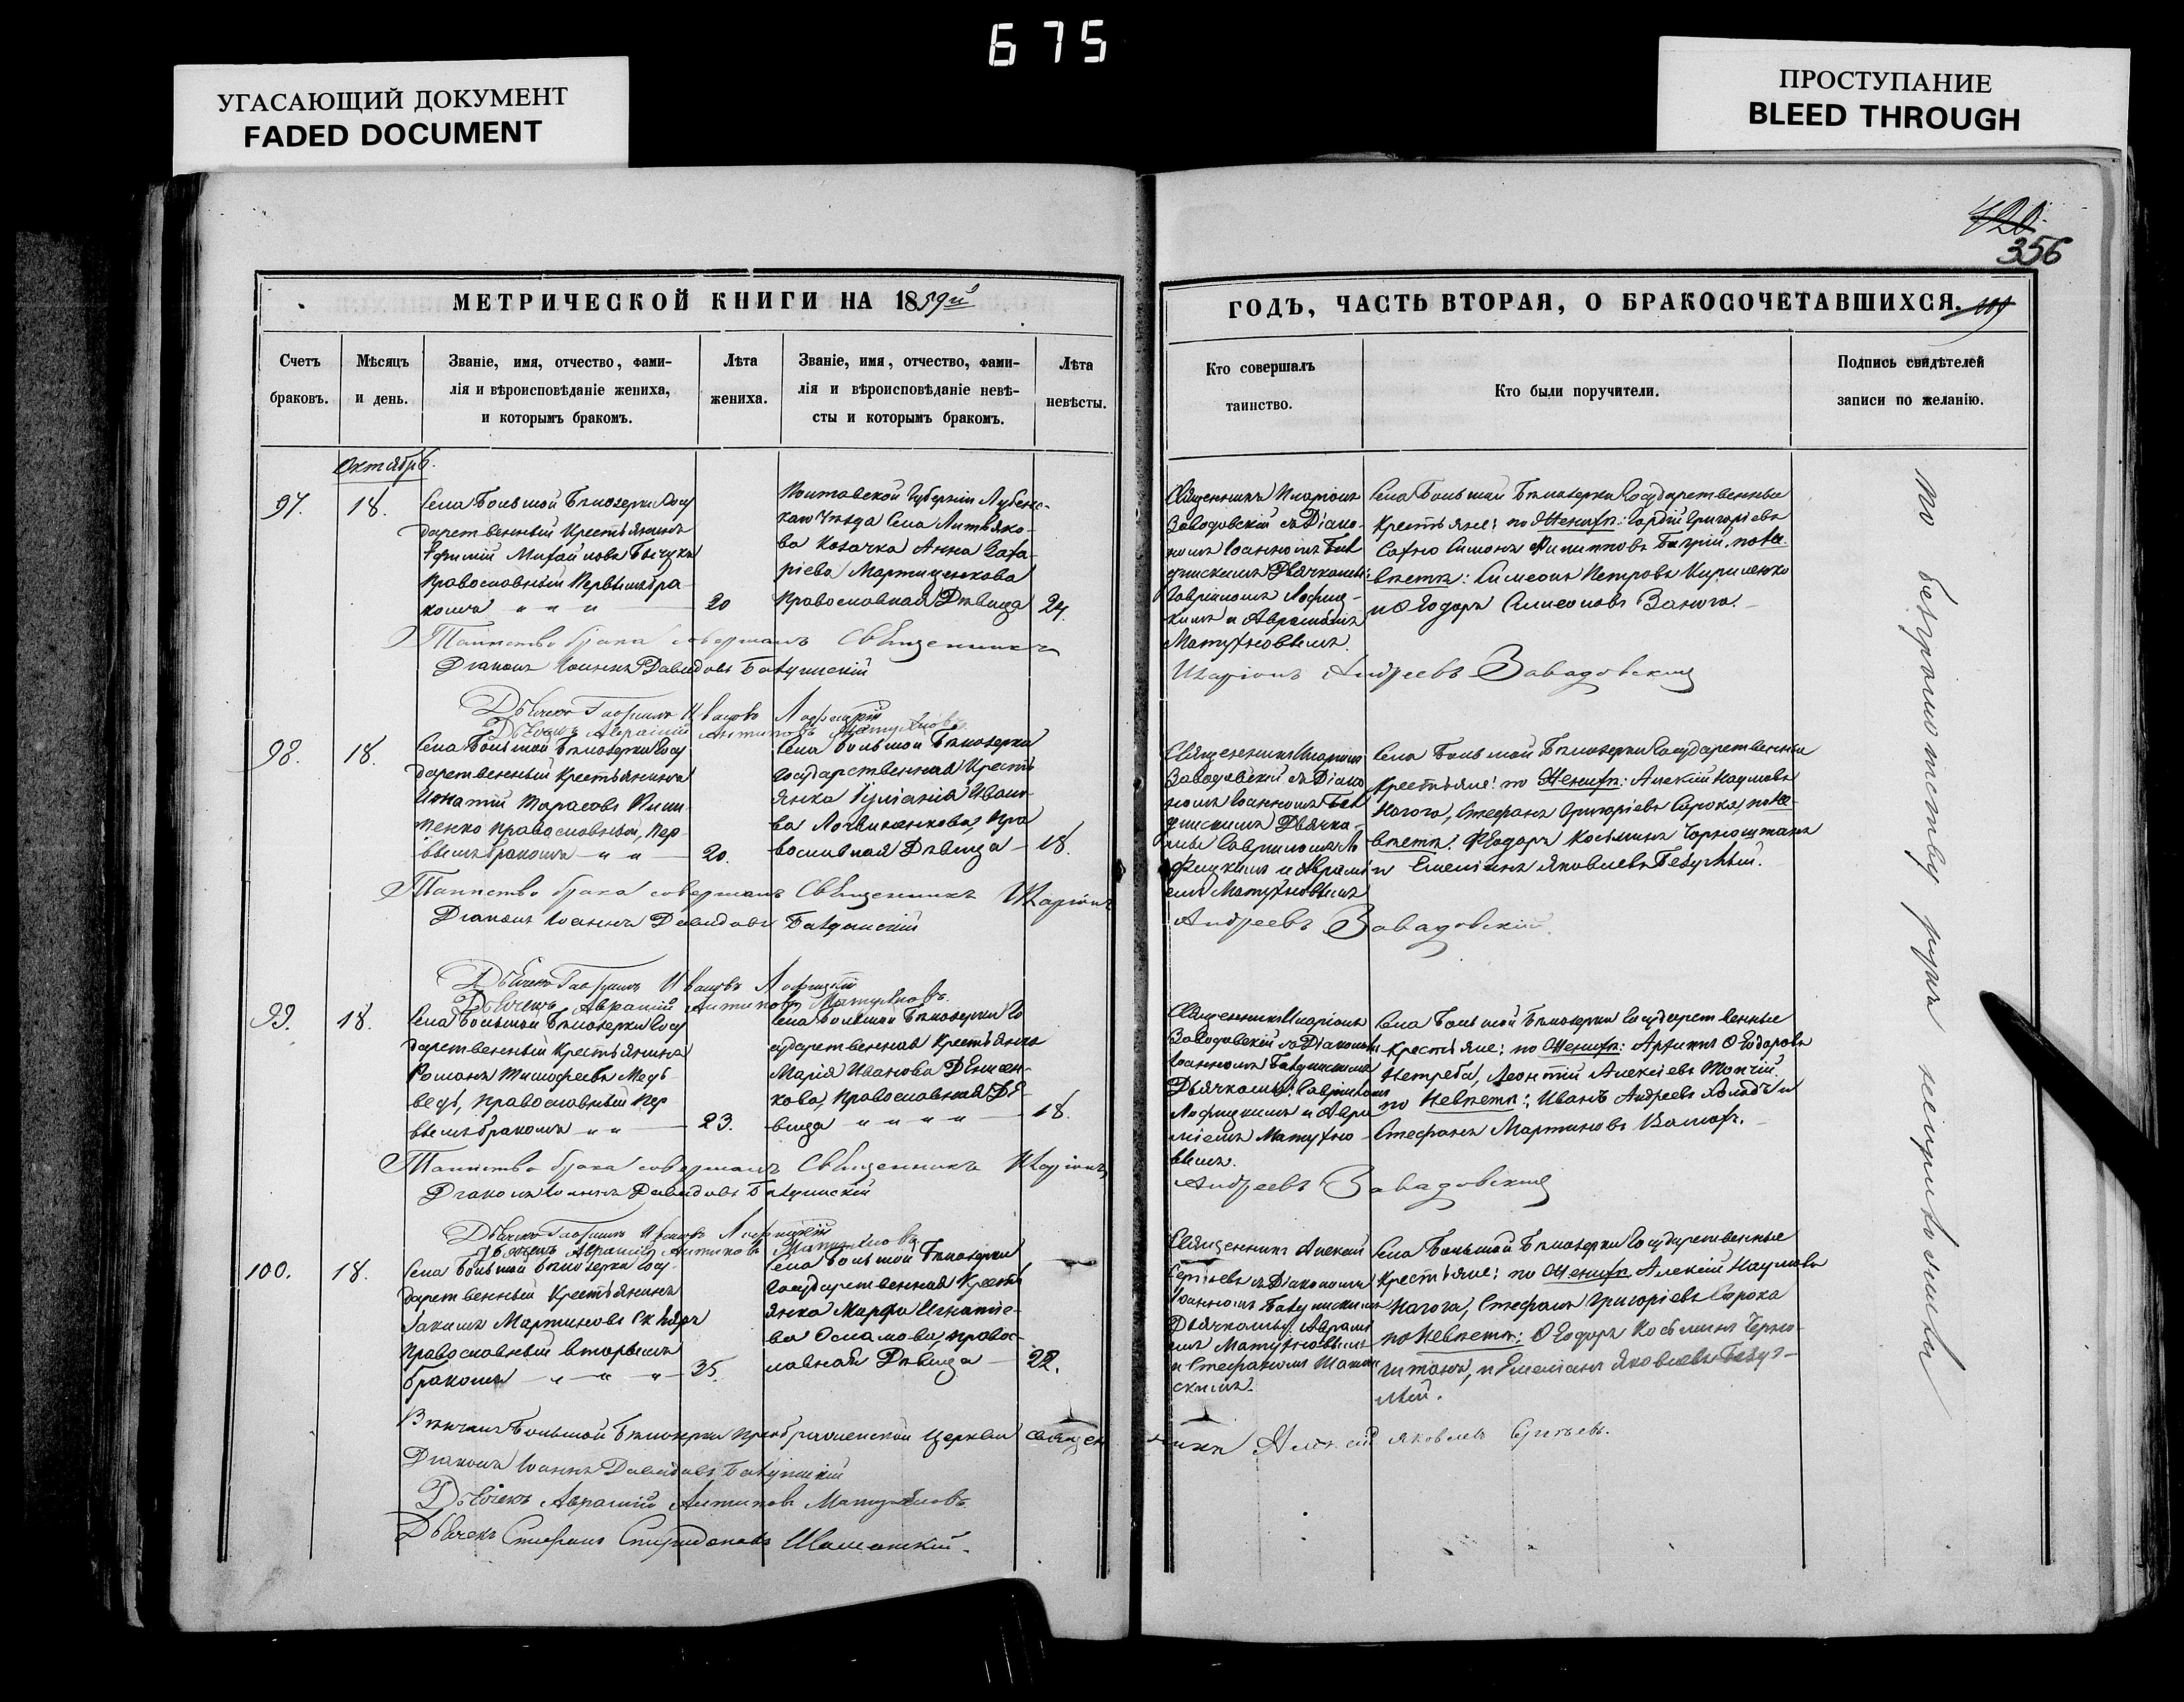 675
УГАСАЮЩИЙ ДОКУМЕНТ
FADED DOCUMENT
ПРОСТУПАНИЕ
BLEED THROUGH
356
МЕТРИЧЕСКОЙ КНИГИ НА 1859й
ГОДЪ, ЧАСТЬ ВТОРАЯ, О БРАКОСОЧЕТАВШИХСЯ.
Счетъ
браковъ.
Мѣсяцъ
и день.
Званіе, имя, отчество, фами-
лія и вѣроисповѣданіе жениха,
и которымъ бракомъ.
Лѣта
жениха.
Званіе, имя, отчество, фами-
лія и вѣроисповѣданіе невѣ-
сты и которымъ бракомъ.
Лѣта
невѣсты.
Кто совершалъ
таинство.
Кто были поручители.
Подпись свидѣтелей
записи по желанію.
Октябрь.
97.
18.
Села Большой Бѣлозерки Госу
дарственный Крестьянинъ
Ефимій Михайловъ
Православный Первымъ бра-
комъ
20
Полтавской Губерніи Лубенс-
каго Уѣзда Села
ва Козачка Анна Заха-
ріева Мартиненкова
Православная Дѣвица
24.
Священникъ Иларіонъ
Заводовскій съ Діако-
номъ Іоанномъ
Дьячками:
Гавріиломъ Лофиц-
кимъ и Авраміемъ
Матухновымъ.
Села Большой Бѣлозерки Государственные
Крестьяне: по Женихѣ: Гордій Григоріевъ
Сахно Симонъ Филипповъ по Не-
вѣстѣ: Симеонъ Петровъ Кириленко
и Ѳеодоръ Симеоновъ
Таинство брака совершалъ Священникъ
Иларіонъ Андреевъ Завадовский
Діаконъ Іоаннъ Давидовъ
Дьячекъ Гавриилъ Ивановъ Лофицкій
Дьячекъ Аврамій Антиповъ Матухновъ
98.
18.
Села Большой Бѣлозерки Госу
дарственный Крестьянинъ
Игнатій Тарасовъ Пили-
пенко православный, Пер-
вымъ бракомъ
20.
Села Большой Бѣлозерки
Государственная Кресть
янка Іуліанія Ивано-
ва Логвиненкова, Пра
вославная Дѣвица
18.
Священникъ Иларіонъ
Заводовскій съ Діако
номъ Іоанномъ
Дьячка-
ми Гавриломъ Ло
фицкимъ и Аврамі
емъ Матухновымъ
Села Большой Бѣлозерки Государственные
Крестьяне: по Женихѣ: Алексій Наумовъ
Нагога, Стефанъ Григоріевъ Сирока, по Не-
вѣстѣ: Ѳеодоръ Косьминъ Чорноштанъ
и Емеліанъ Яковлевъ
Таинство брака совершалъ Священникъ Иларіонъ
Андреевъ Завадовский.
Діаконъ Іоаннъ Давидовъ
Дьячекъ Гавриилъ Ивановъ Лофицкій
Дьячекъ Аврамій Антиповъ Матухновъ.
99.
18.
Села Большой Бѣлозерки Госу
дарственный Крестьянинъ
Романъ Тимофеевъ Мед-
ведь, Православный Пер
вымъ бракомъ
23.
Села Большой Бѣлозерки Го
сударственная Крестьянка
Марія Иванова Дѣнисен-
кова, Православная Дѣ-
вица
18.
Священникъ Иларіонъ
Заводовскій съ Діакономъ
Іоанномъ
Дьячками: Гавріиломъ
Лофицкимъ и Авра
міемъ Матухно-
вымъ.
Села Большой Бѣлозерки Государственные
Крестьяне: по Женихѣ: Ѳеодоровъ
Нетреба, Леонтій Алексіевъ Топчій.
по Невѣстѣ: Иванъ Андреевъ и
Стефанъ Мартиновъ
Таинство брака совершалъ Священникъ Иларіонъ
Андреевъ Завадовский
Діаконъ Іоаннъ Давидовъ
Дьячекъ Гавриилъ Ивановъ Лофицкій
Дьячекъ Аврамій Антиповъ Матухновъ
100.
18.
Села Большой Бѣлозерки Госу
дарственный Крестьянинъ
Іакимъ Мартиновъ Скляръ
Православный вторымъ
бракомъ
35.
Села Большой Бѣлозерки
Государственная Кресть
янка Марфа Игнатіе-
ва Осмалова, правос-
лавная Дѣвица
22.
Священникъ Алексій
Сергѣевъ съ Діакономъ
Іоанномъ
Дьячками: Аврамі
емъ Матухновымъ
и Стефаномъ Шаман
скимъ.
Села Большой Бѣлозерки Государственные
Крестьяне: по Женихѣ Алексій Наумовъ
Нагога, Стефанъ Григоріевъ Сирока
по Невѣстѣ: Ѳеодоръ Косьминъ Черно-
штанъ, и Емеліанъ Яковлевъ
Вѣнчалъ Большой Бѣлозерки Преображенской Церкви Священ
никъ Алексій Яковлевъ Сергѣевъ.
Діаконъ Іоаннъ Давидовъ
Дьячекъ Аврамій Антиповъ Матухновъ.
Дьячекъ Стефанъ Спиридоновъ Шаманскій.
по безграмотству руки неприложили